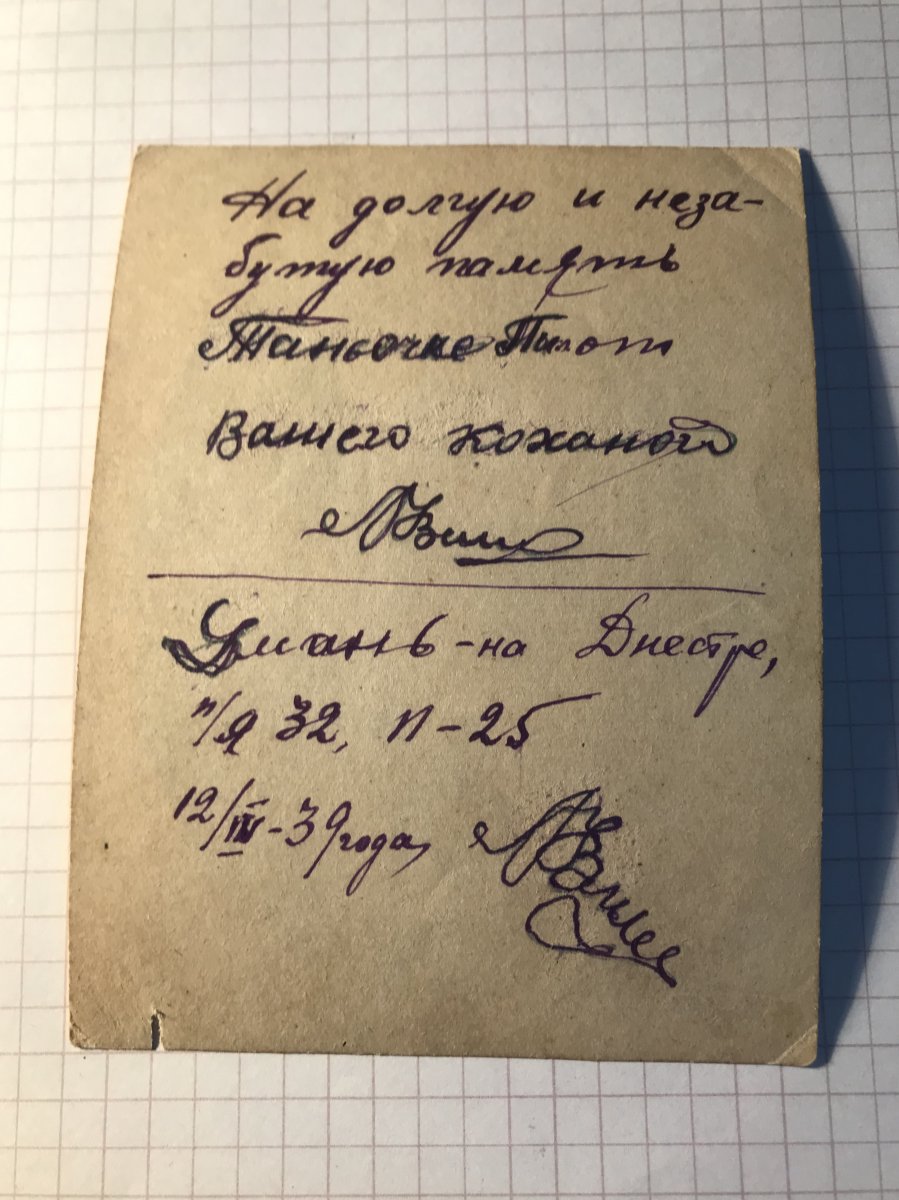 На долгую и неза-
бутую память
Таньочке
Вашего коханого
Умань-на Днестре,
п/я 32, п-25
12/III-39 года,